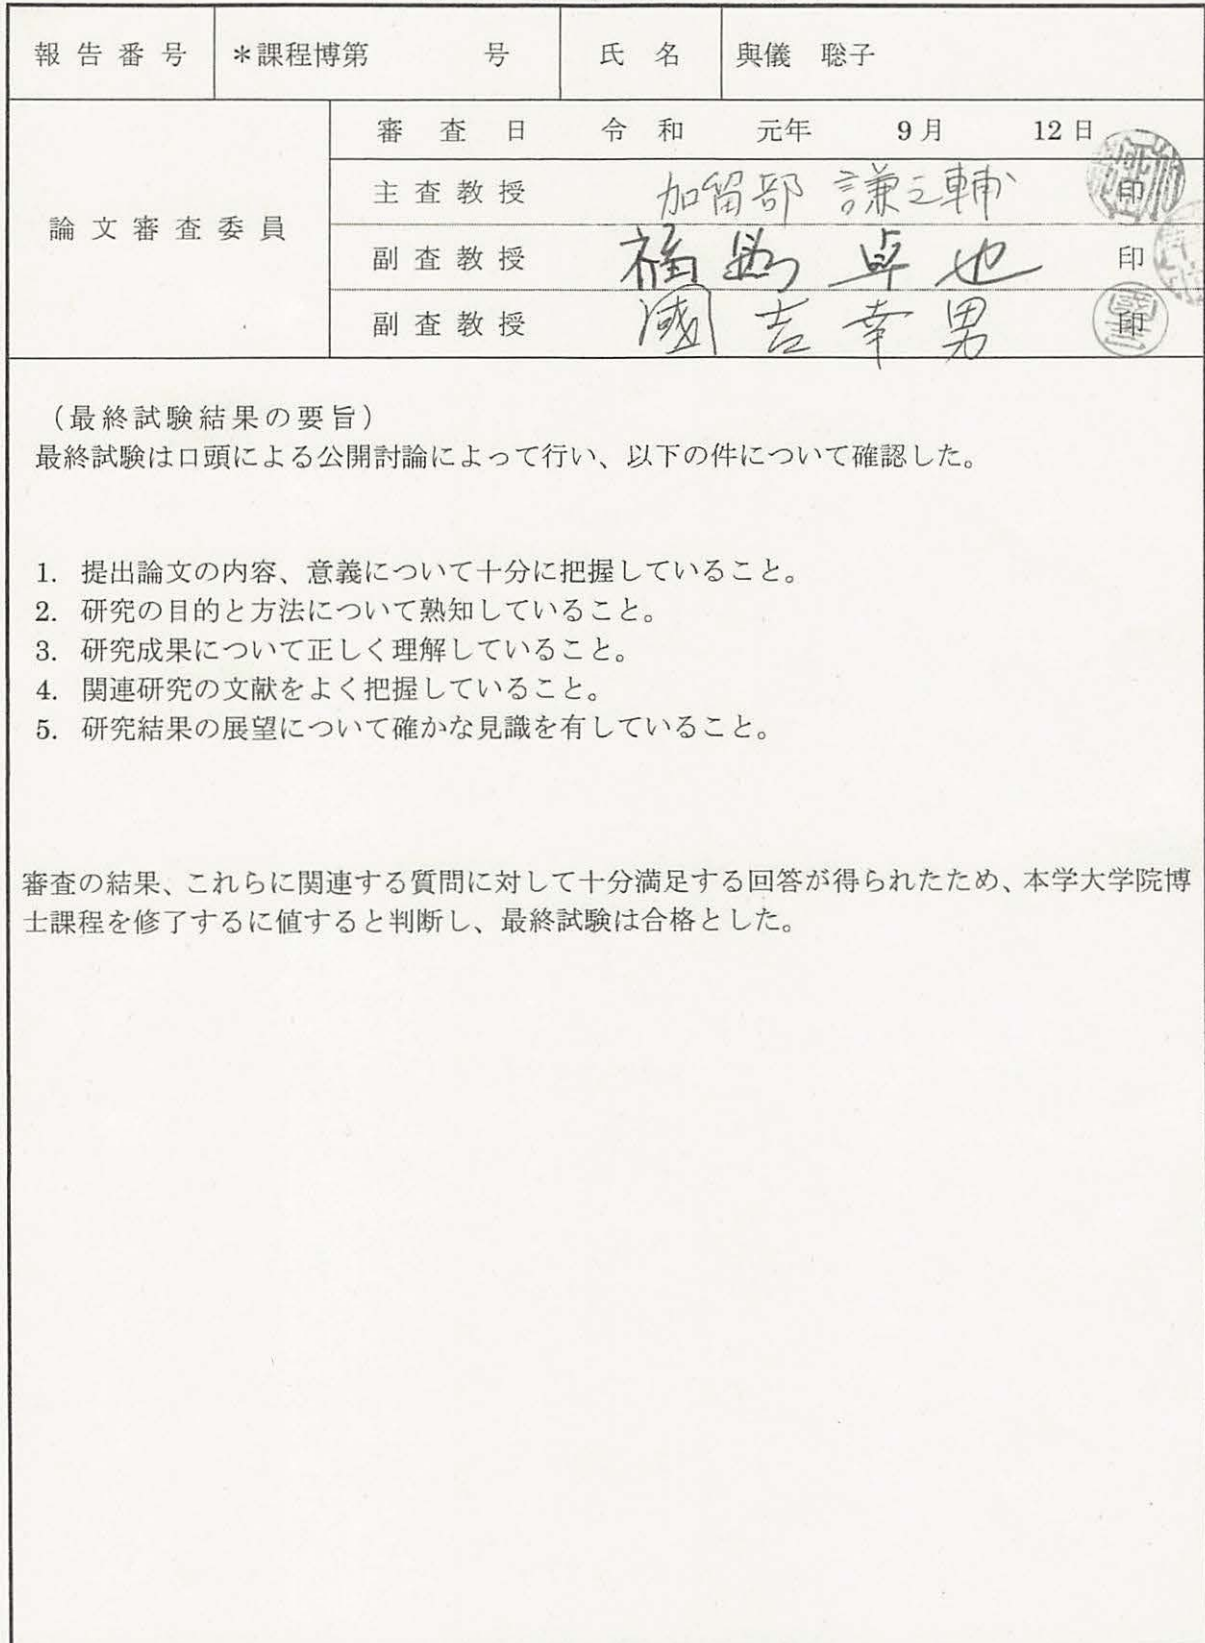 報告番号 ＊課程博第 号 氏名 與儀 聡子
審査日 令和 元年 9月 12日
論文審査委員
主査教授 加留部 謙之輔 印
副査教授 福島 卓也 印
副査教授 國吉 幸男 印
（最終試験結果の要旨）
最終試験は口頭による公開討論によって行い、以下の件について確認した。
1. 提出論文の内容、意義について十分に把握していること。
2. 研究の目的と方法について熟知していること。
3. 研究成果について正しく理解していること。
4. 関連研究の文献をよく把握していること。
5. 研究結果の展望について確かな見識を有していること。
審査の結果、これらに関連する質問に対して十分満足する回答が得られたため、本学大学院博
士課程を修了するに値すると判断し、最終試験は合格とした。